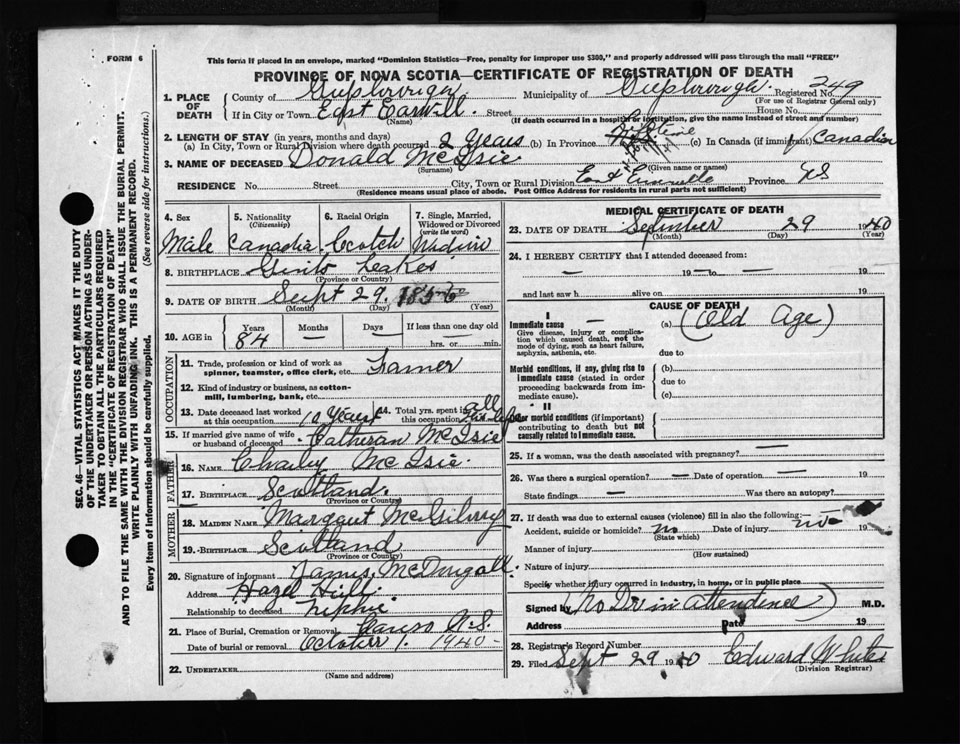 FORM 6
This form if placed in an envelope, marked "Dominion Statistics—Free, penalty for improper use $300," and properly addressed will pass through the mail "FREE"
PROVINCE OF NOVA SCOTIA—CERTIFICATE OF REGISTRATION OF DEATH
SEC. 46—VITAL STATISTICS ACT MAKES IT THE DUTY
OF THE UNDERTAKER OR PERSON ACTING AS UNDER-
TAKER TO OBTAIN ALL THE PARTICULARS REQUIRED
IN THE "CERTIFICATE OF REGISTRATION OF DEATH"
AND TO FILE THE SAME WITH THE DIVISION REGISTRAR WHO SHALL ISSUE THE BURIAL PERMIT.
WRITE PLAINLY WITH UNFADING INK. THIS IS A PERMANENT RECORD.
Every item of information should be carefully supplied. (See reverse side for instructions.)
1. PLACE OF DEATH
County of Municipality of Registered No. 249
(For use of Registrar General only)
If in City or Town East Street House No.
(Name) (If death occurred in a hospital or institution, give the name instead of street and number)
2. LENGTH OF STAY (in years, months and days)
(a) In City, Town or Rural Division where death occurred 2 years (b) In Province (c) In Canada (if immigrant) Canadian
3. NAME OF DECEASED Donald McIsie
(Surname) (Given name or names)
RESIDENCE No. Street City, Town or Rural Division East Province NS
(Residence means usual place of abode. Post Office Address for residents in rural parts not sufficient)
4. Sex
Male
5. Nationality
(Citizenship)
Canadia
6. Racial Origin
Scotch
7. Single, Married,
Widowed or Divorced
(write the word)
8. BIRTHPLACE
(Province or Country)
9. DATE OF BIRTH Sept 29. 1856
(Month) (Day) (Year)
10. AGE in
Years
84
Months
—
Days
If less than one day old
hrs. or min.
OCCUPATION
11. Trade, profession or kind of work as
spinner, teamster, office clerk, etc. Farmer
12. Kind of industry or business, as cotton-
mill, lumbering, bank, etc.
13. Date deceased last worked
at this occupation 10 Years
14. Total yrs. spent in
this occupation all his life
15. If married give name of wife
or husband of deceased Catheran McIsie
FATHER
16. NAME Charley McIsie.
17. BIRTHPLACE Scotland.
(Province or Country)
MOTHER
18. MAIDEN NAME Margaut McGilvry
19. BIRTHPLACE Scotland
(Province or Country)
20. Signature of informant James McDougall.
Address Hazel Hill.
Relationship to deceased Nephie.
21. Place of Burial, Cremation or Removal Canso N.S.
Date of burial or removal October 1. 1940-
22. UNDERTAKER
(Name and address)
MEDICAL CERTIFICATE OF DEATH
23. DATE OF DEATH September 29 1940
(Month) (Day) (Year)
24. I HEREBY CERTIFY that I attended deceased from:
— 19 — to — 19
and last saw h alive on 19
CAUSE OF DEATH
I
Immediate cause — (a) (Old Age)
Give disease, injury or complica-
tion which caused death, not the
mode of dying, such as heart failure,
asphyxia, asthenia, etc.
due to
Morbid conditions, if any, giving rise to
immediate cause (stated in order
proceeding backwards from im-
mediate cause).
(b)
due to
(c)
II
Other morbid conditions (if important)
contributing to death but not
causally related to immediate cause.
25. If a woman, was the death associated with pregnancy? —
26. Was there a surgical operation? — Date of operation — 19
State findings — Was there an autopsy?
27. If death was due to external causes (violence) fill in also the following:—
Accident, suicide or homicide? no Date of injury no 19
(State which)
Manner of injury
(How sustained)
Nature of injury
Specify whether injury occurred in industry, in home, or in public place
Signed by (No Dr in attendence) M.D.
Address Date 19
28. Registrar's Record Number
29. Filed Sept 29 1940 Edward White
(Division Registrar)